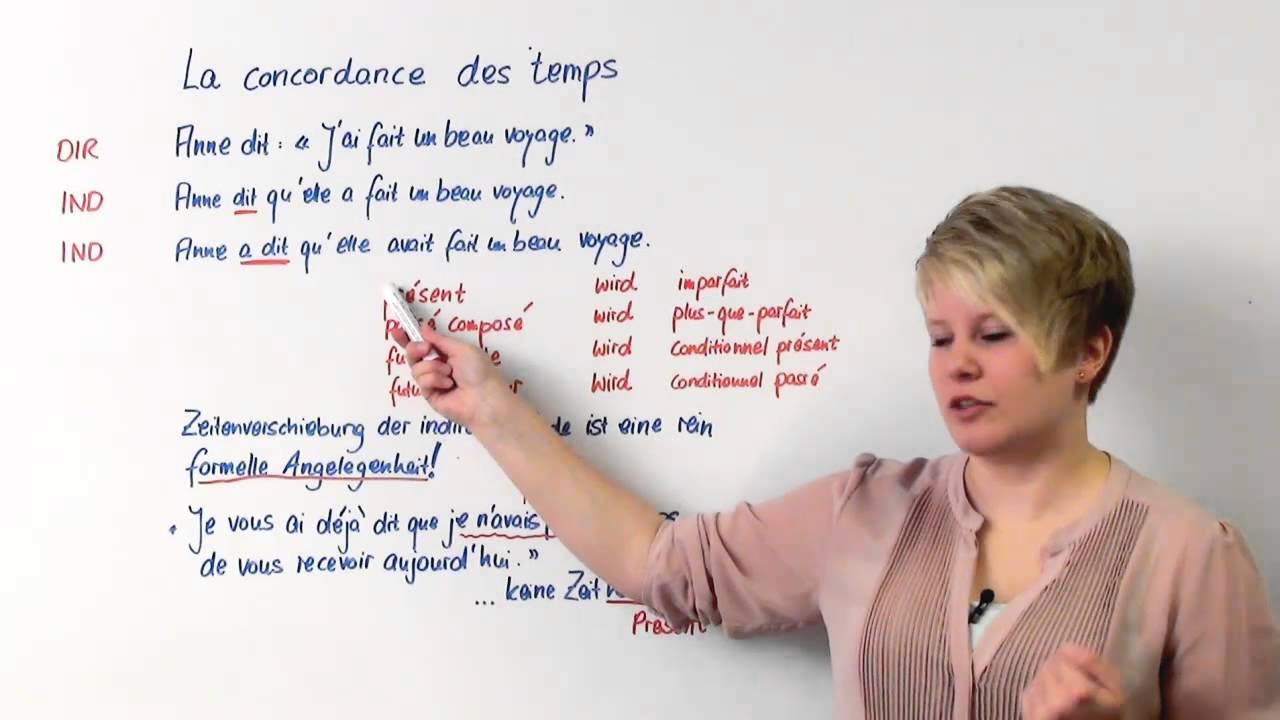 La concordance des temps
DIR Anne dit : « J'ai fait un beau voyage. »
IND Anne dit qu'elle a fait un beau voyage.
IND Anne a dit qu'elle avait fait un beau voyage.
présent wird imparfait
passé composé wird plus-que-parfait
wird conditionnel présent
wird conditionnel passé
Zeitenverschiebung der ist eine rein
formelle Angelegenheit!
" Je vous ai déjà dit que je n'avais
de vous recevoir aujourd'hui. "
... keine Zeit
Present